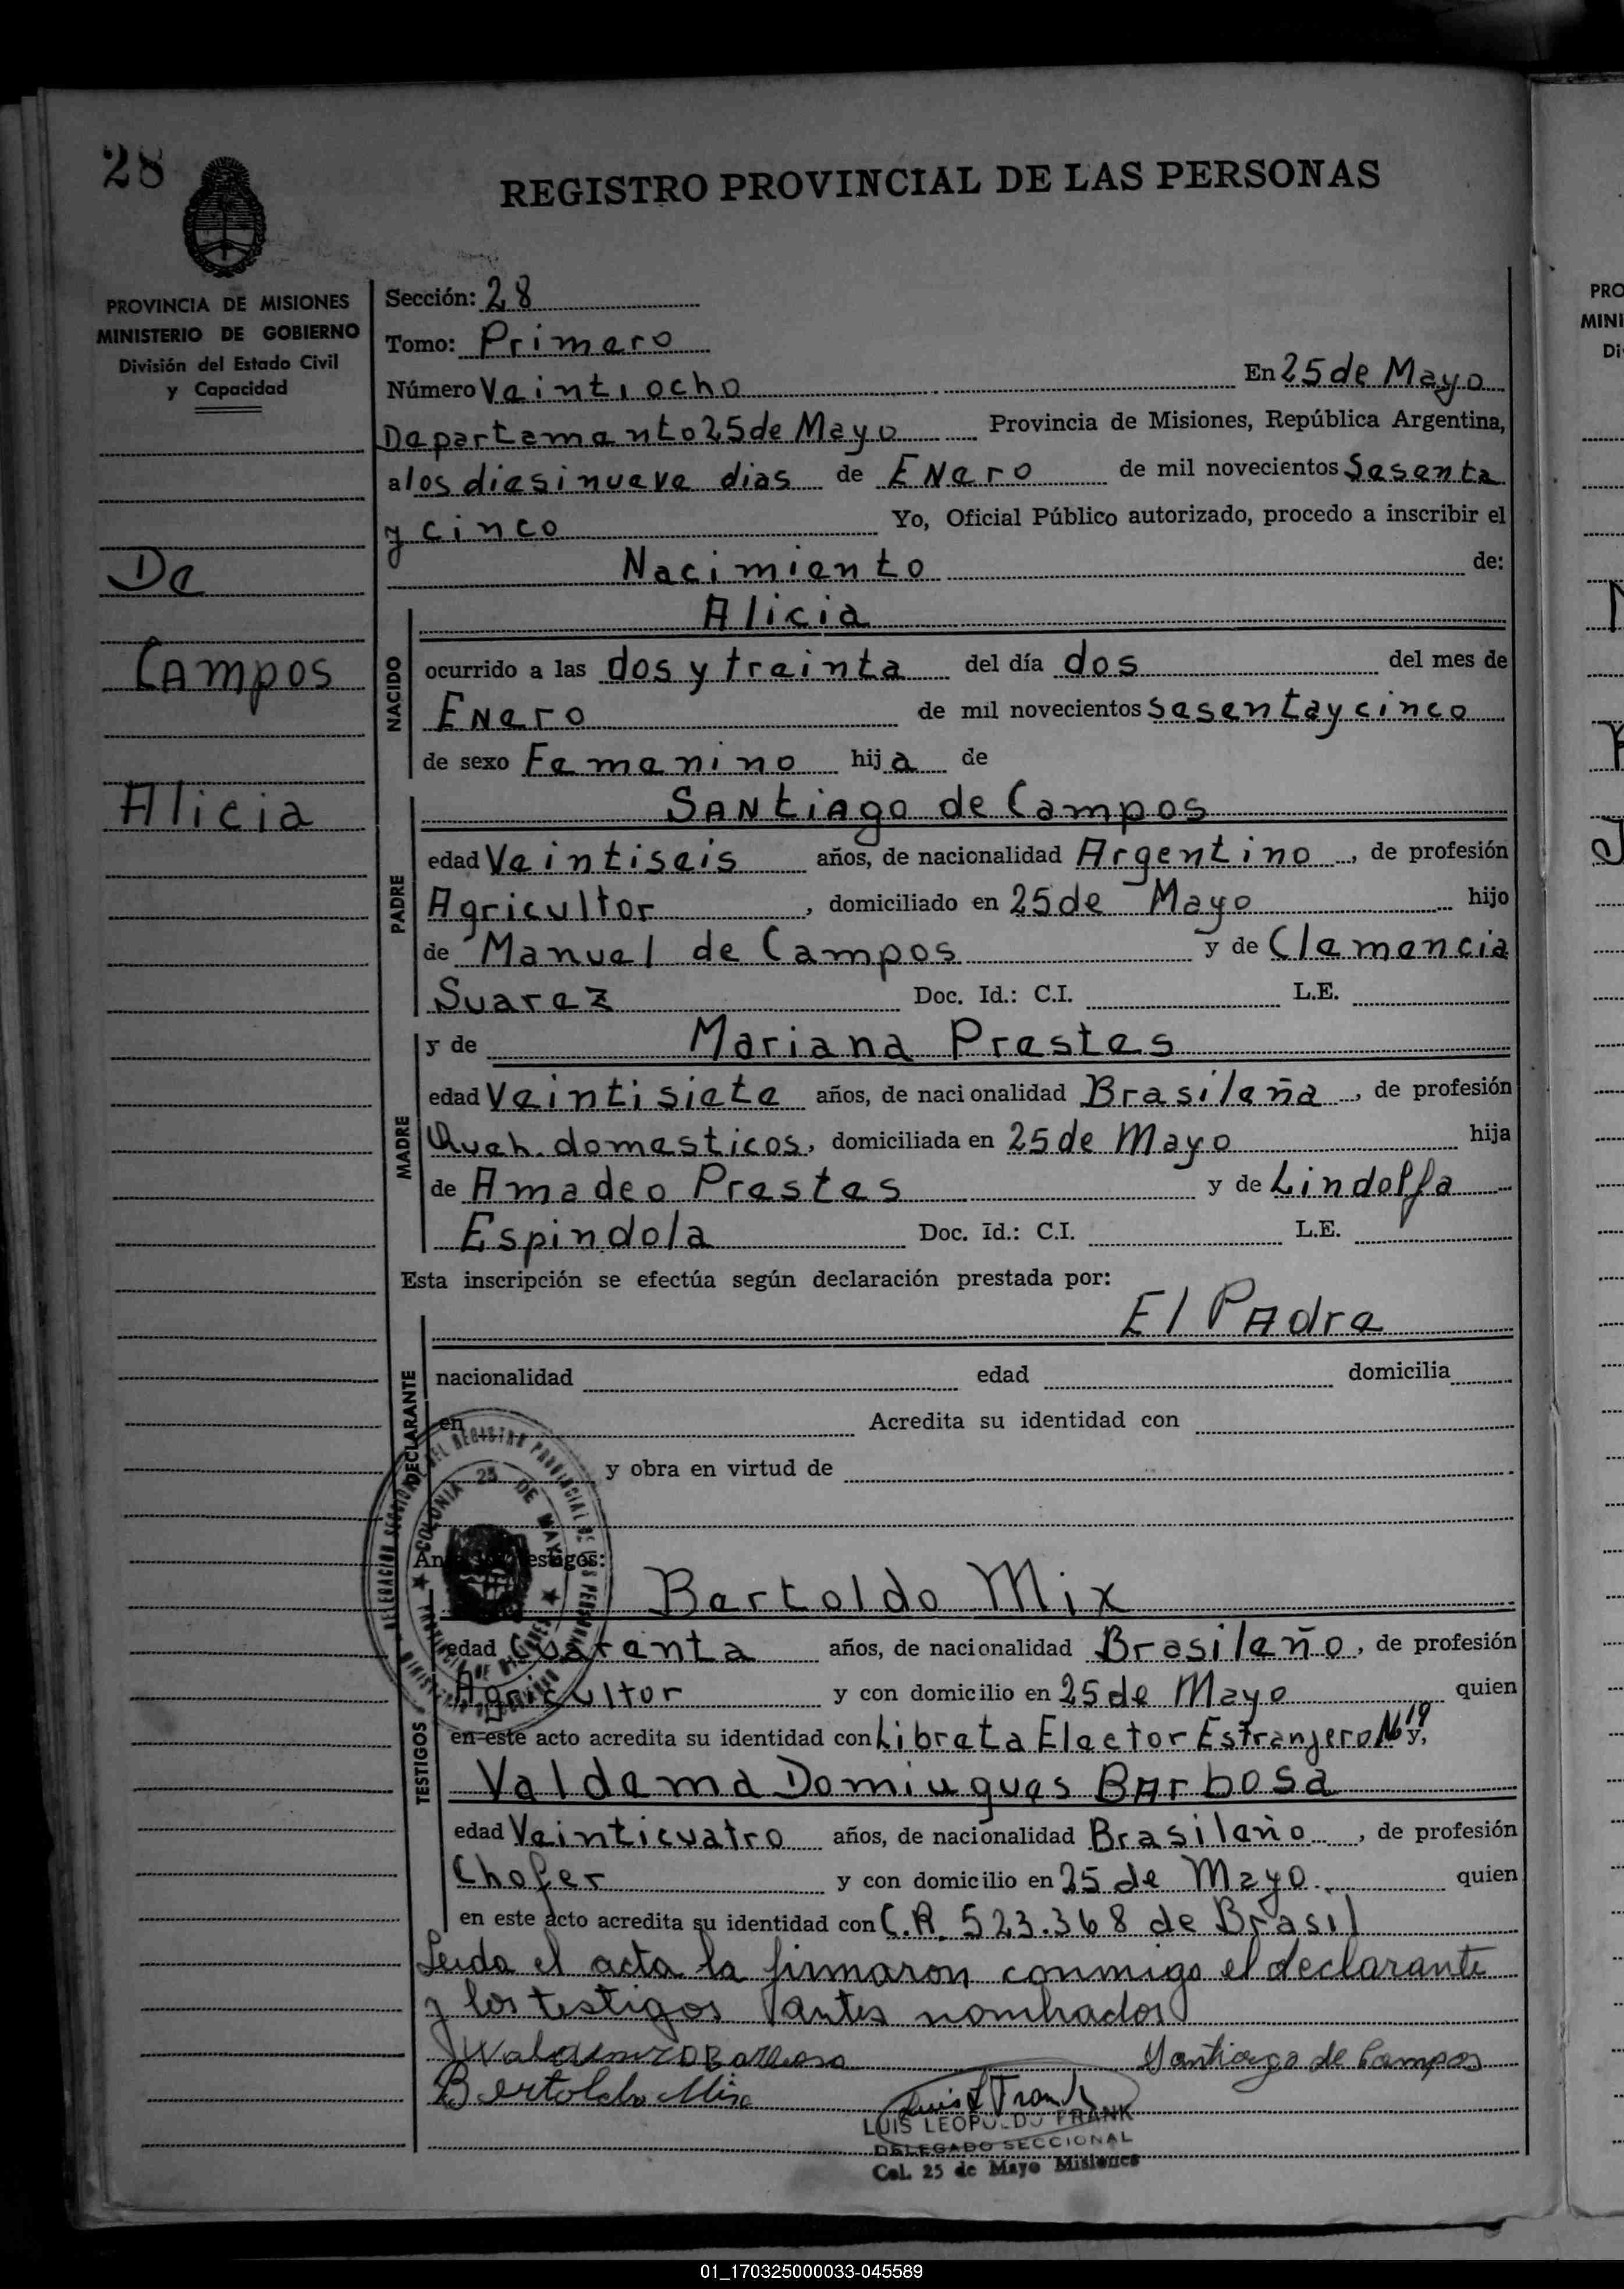 28
REGISTRO PROVINCIAL DE LAS PERSONAS
PROVINCIA DE MISIONES
MINISTERIO DE GOBIERNO
División del Estado Civil
y Capacidad
De
Campos
Alicia
Sección: 28
Tomo: Primero
Número Veintiocho En 25 de Mayo
Departamento 25 de Mayo Provincia de Misiones, República Argentina,
a los diesinueve dias de Enero de mil novecientos Sesenta
y cinco Yo, Oficial Público autorizado, procedo a inscribir el
Nacimiento de:
NACIDO
Alicia
ocurrido a las dos y treinta del día dos del mes de
Enero de mil novecientos Sesenta y cinco
de sexo Femenino hija de
PADRE
Santiago de Campos
edad Veintiseis años, de nacionalidad Argentino, de profesión
Agricultor, domiciliado en 25 de Mayo hijo
de Manuel de Campos y de Clemencia
Suarez Doc. Id.: C.I. L.E.
MADRE
y de Mariana Prestes
edad Veintisiete años, de nacionalidad Brasileña, de profesión
Queh. domesticos, domiciliada en 25 de Mayo hija
de Amadeo Prestes y de Lindolfa
Espindola Doc. Id.: C.I. L.E.
Esta inscripción se efectúa según declaración prestada por:
DECLARANTE
El Padre
nacionalidad edad domicilia
en Acredita su identidad con
y obra en virtud de
COLONIA 25 DE MAYO
TESTIGOS
Bertoldo Mix
edad Cuarenta años, de nacionalidad Brasileño, de profesión
Agricultor y con domicilio en 25 de Mayo quien
en este acto acredita su identidad con Libreta Elector Estranjero Nº 19 y,
Valdema Domingues Barbosa
edad Veinticuatro años, de nacionalidad Brasileño, de profesión
Chofer y con domicilio en 25 de Mayo quien
en este acto acredita su identidad con C.R. 523.368 de Brasil
Leida el acta la firmaron conmigo el declarante
y los testigos antes nombrados
Santiago de Campos
Bertoldo Mix
LUIS LEOPOLDO FRANK
DELEGADO SECCIONAL
Col. 25 de Mayo Misiones
PRO
MINI
Di
01_170325000033-045589